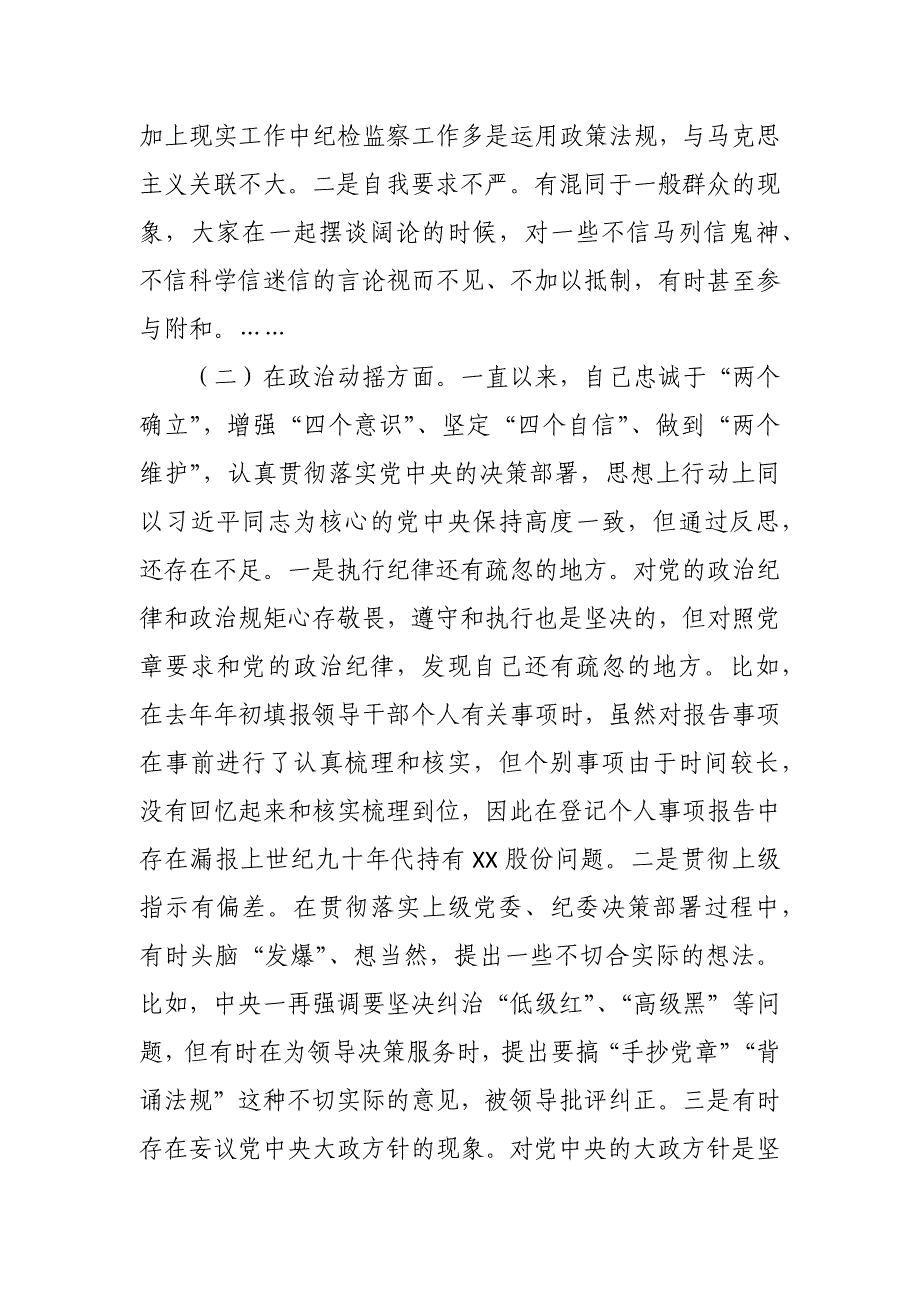 加上现实工作中纪检监察工作多是运用政策法规，与马克思
主义关联不大。二是自我要求不严。有混同于一般群众的现
象，大家在一起摆谈阔论的时候，对一些不信马列信鬼神、
不信科学信迷信的言论视而不见、不加以抵制，有时甚至参
与附和。……
（二）在政治动摇方面。一直以来，自己忠诚于“两个
确立”，增强“四个意识”、坚定“四个自信”、做到“两个
维护”，认真贯彻落实党中央的决策部署，思想上行动上同
以习近平同志为核心的党中央保持高度一致，但通过反思，
还存在不足。一是执行纪律还有疏忽的地方。对党的政治纪
律和政治规矩心存敬畏，遵守和执行也是坚决的，但对照党
章要求和党的政治纪律，发现自己还有疏忽的地方。比如，
在去年年初填报领导干部个人有关事项时，虽然对报告事项
在事前进行了认真梳理和核实，但个别事项由于时间较长，
没有回忆起来和核实梳理到位，因此在登记个人事项报告中
存在漏报上世纪九十年代持有 XX 股份问题。二是贯彻上级
指示有偏差。在贯彻落实上级党委、纪委决策部署过程中，
有时头脑“发爆”、想当然，提出一些不切合实际的想法。
比如，中央一再强调要坚决纠治“低级红”、“高级黑”等问
题，但有时在为领导决策服务时，提出要搞“手抄党章”“背
诵法规”这种不切实际的意见，被领导批评纠正。三是有时
存在妄议党中央大政方针的现象。对党中央的大政方针是坚